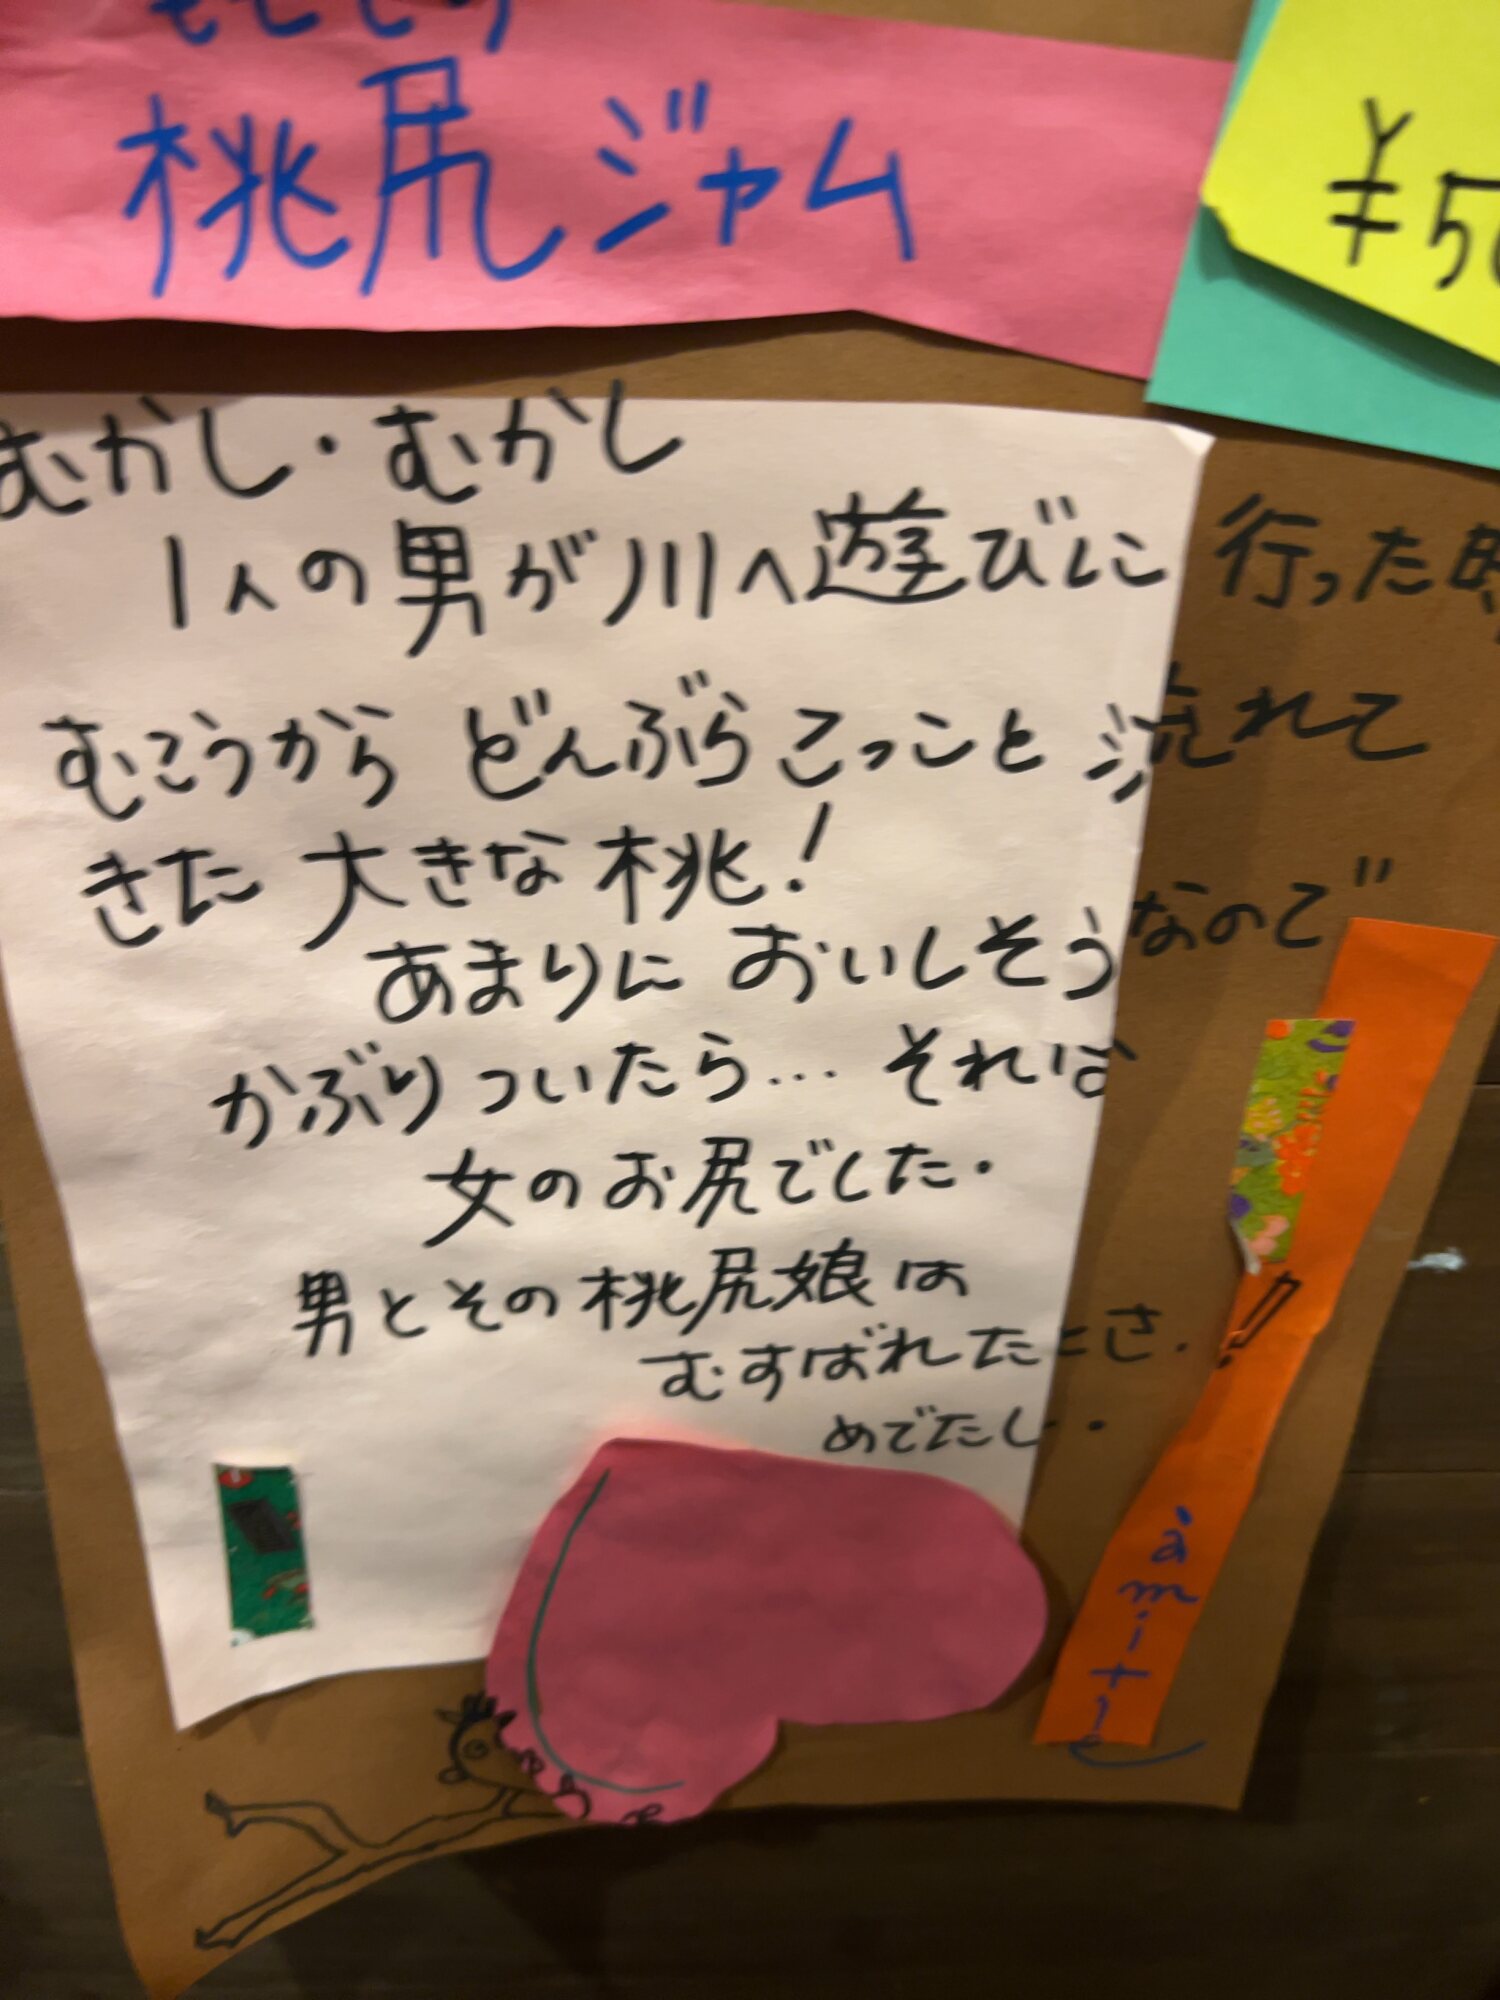 桃尻ジャム
¥50
むかし・むかし
1人の男が川へ遊びに行った時
むこうから どんぶらこっこと 流れて
きた 大きな桃!
あまりに おいしそうなので
かぶりついたら… それは
女のお尻でした.
男とその桃尻娘は
むすばれたとさ.!!
めでたし.
amitie